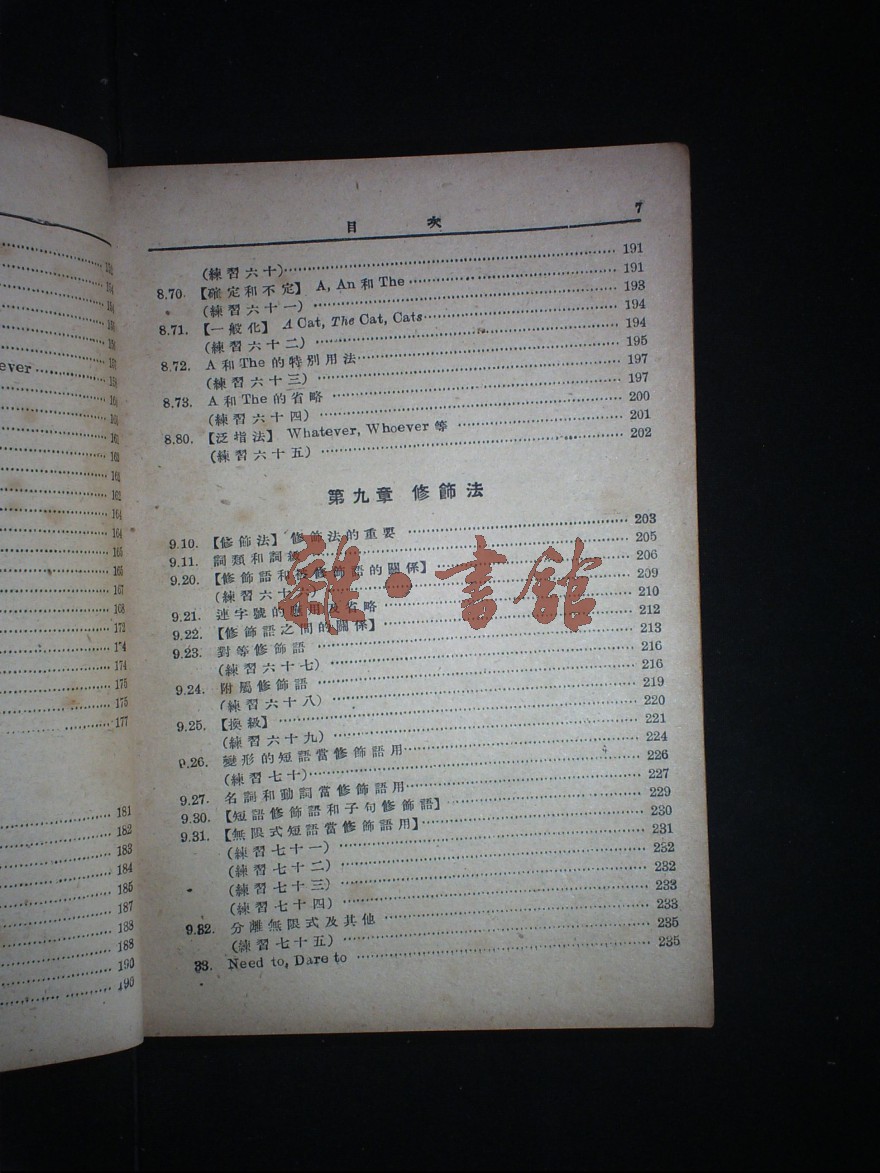 ever
161
162
162
164
164
165
166
167
168
172
174
174
175
175
177
181
182
183
184
185
187
188
188
190
190
目 次 7
(練習六十) 191
8.70. 【確定和不定】 A, An 和 The 191
(練習六十一) 193
8.71. 【一般化】 A Cat, The Cat, Cats 194
(練習六十二) 194
8.72. A 和 The 的特別用法 195
(練習六十三) 197
8.73. A 和 The 的省略 197
(練習六十四) 200
8.80. 【泛指法】 Whatever, Whoever 等 201
(練習六十五) 202
第九章 修飾法
9.10. 【修飾法】 修飾法的重要 203
9.11. 詞類和詞級 205
9.20. 【修飾語和被修飾語的關係】 206
(練習六十六) 209
9.21. 連字號的應用及省略 210
9.22. 【修飾語之間的關係】 212
9.23. 對等修飾語 213
(練習六十七) 216
9.24. 附屬修飾語 216
(練習六十八) 219
9.25. 【換級】 220
(練習六十九) 221
9.26. 變形的短語當修飾語用 224
(練習七十) 226
9.27. 名詞和動詞當修飾語用 227
9.30. 【短語修飾語和子句修飾語】 229
9.31. 【無限式短語當修飾語用】 230
(練習七十一) 231
(練習七十二) 232
(練習七十三) 232
(練習七十四) 233
9.32. 分離無限式及其他 233
(練習七十五) 235
33. Need to, Dare to 235
雜·書館